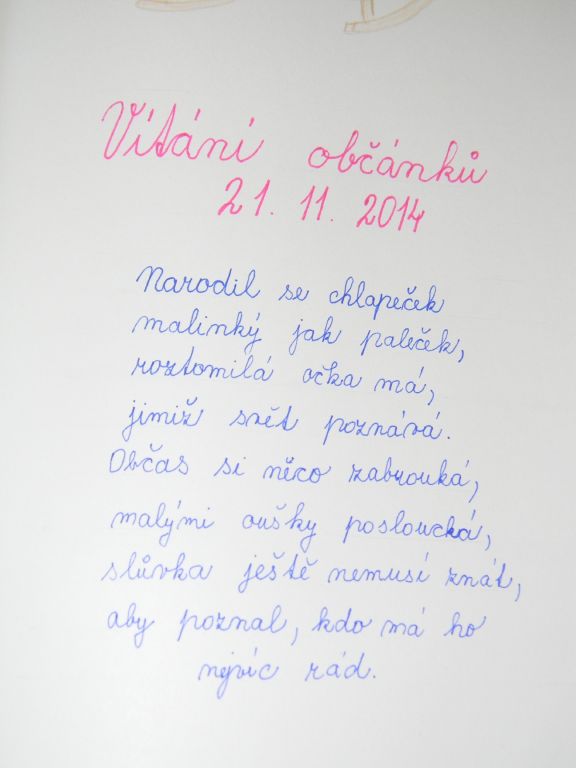 Vítání občánků
21. 11. 2014
Narodil se chlapeček
malinký jak paleček,
roztomilá očka má,
jimiž svět poznává.
Občas si něco zabrouká,
malými oušky poslouchá,
slůvka ještě nemusí znát,
aby poznal, kdo má ho
nejvíc rád.